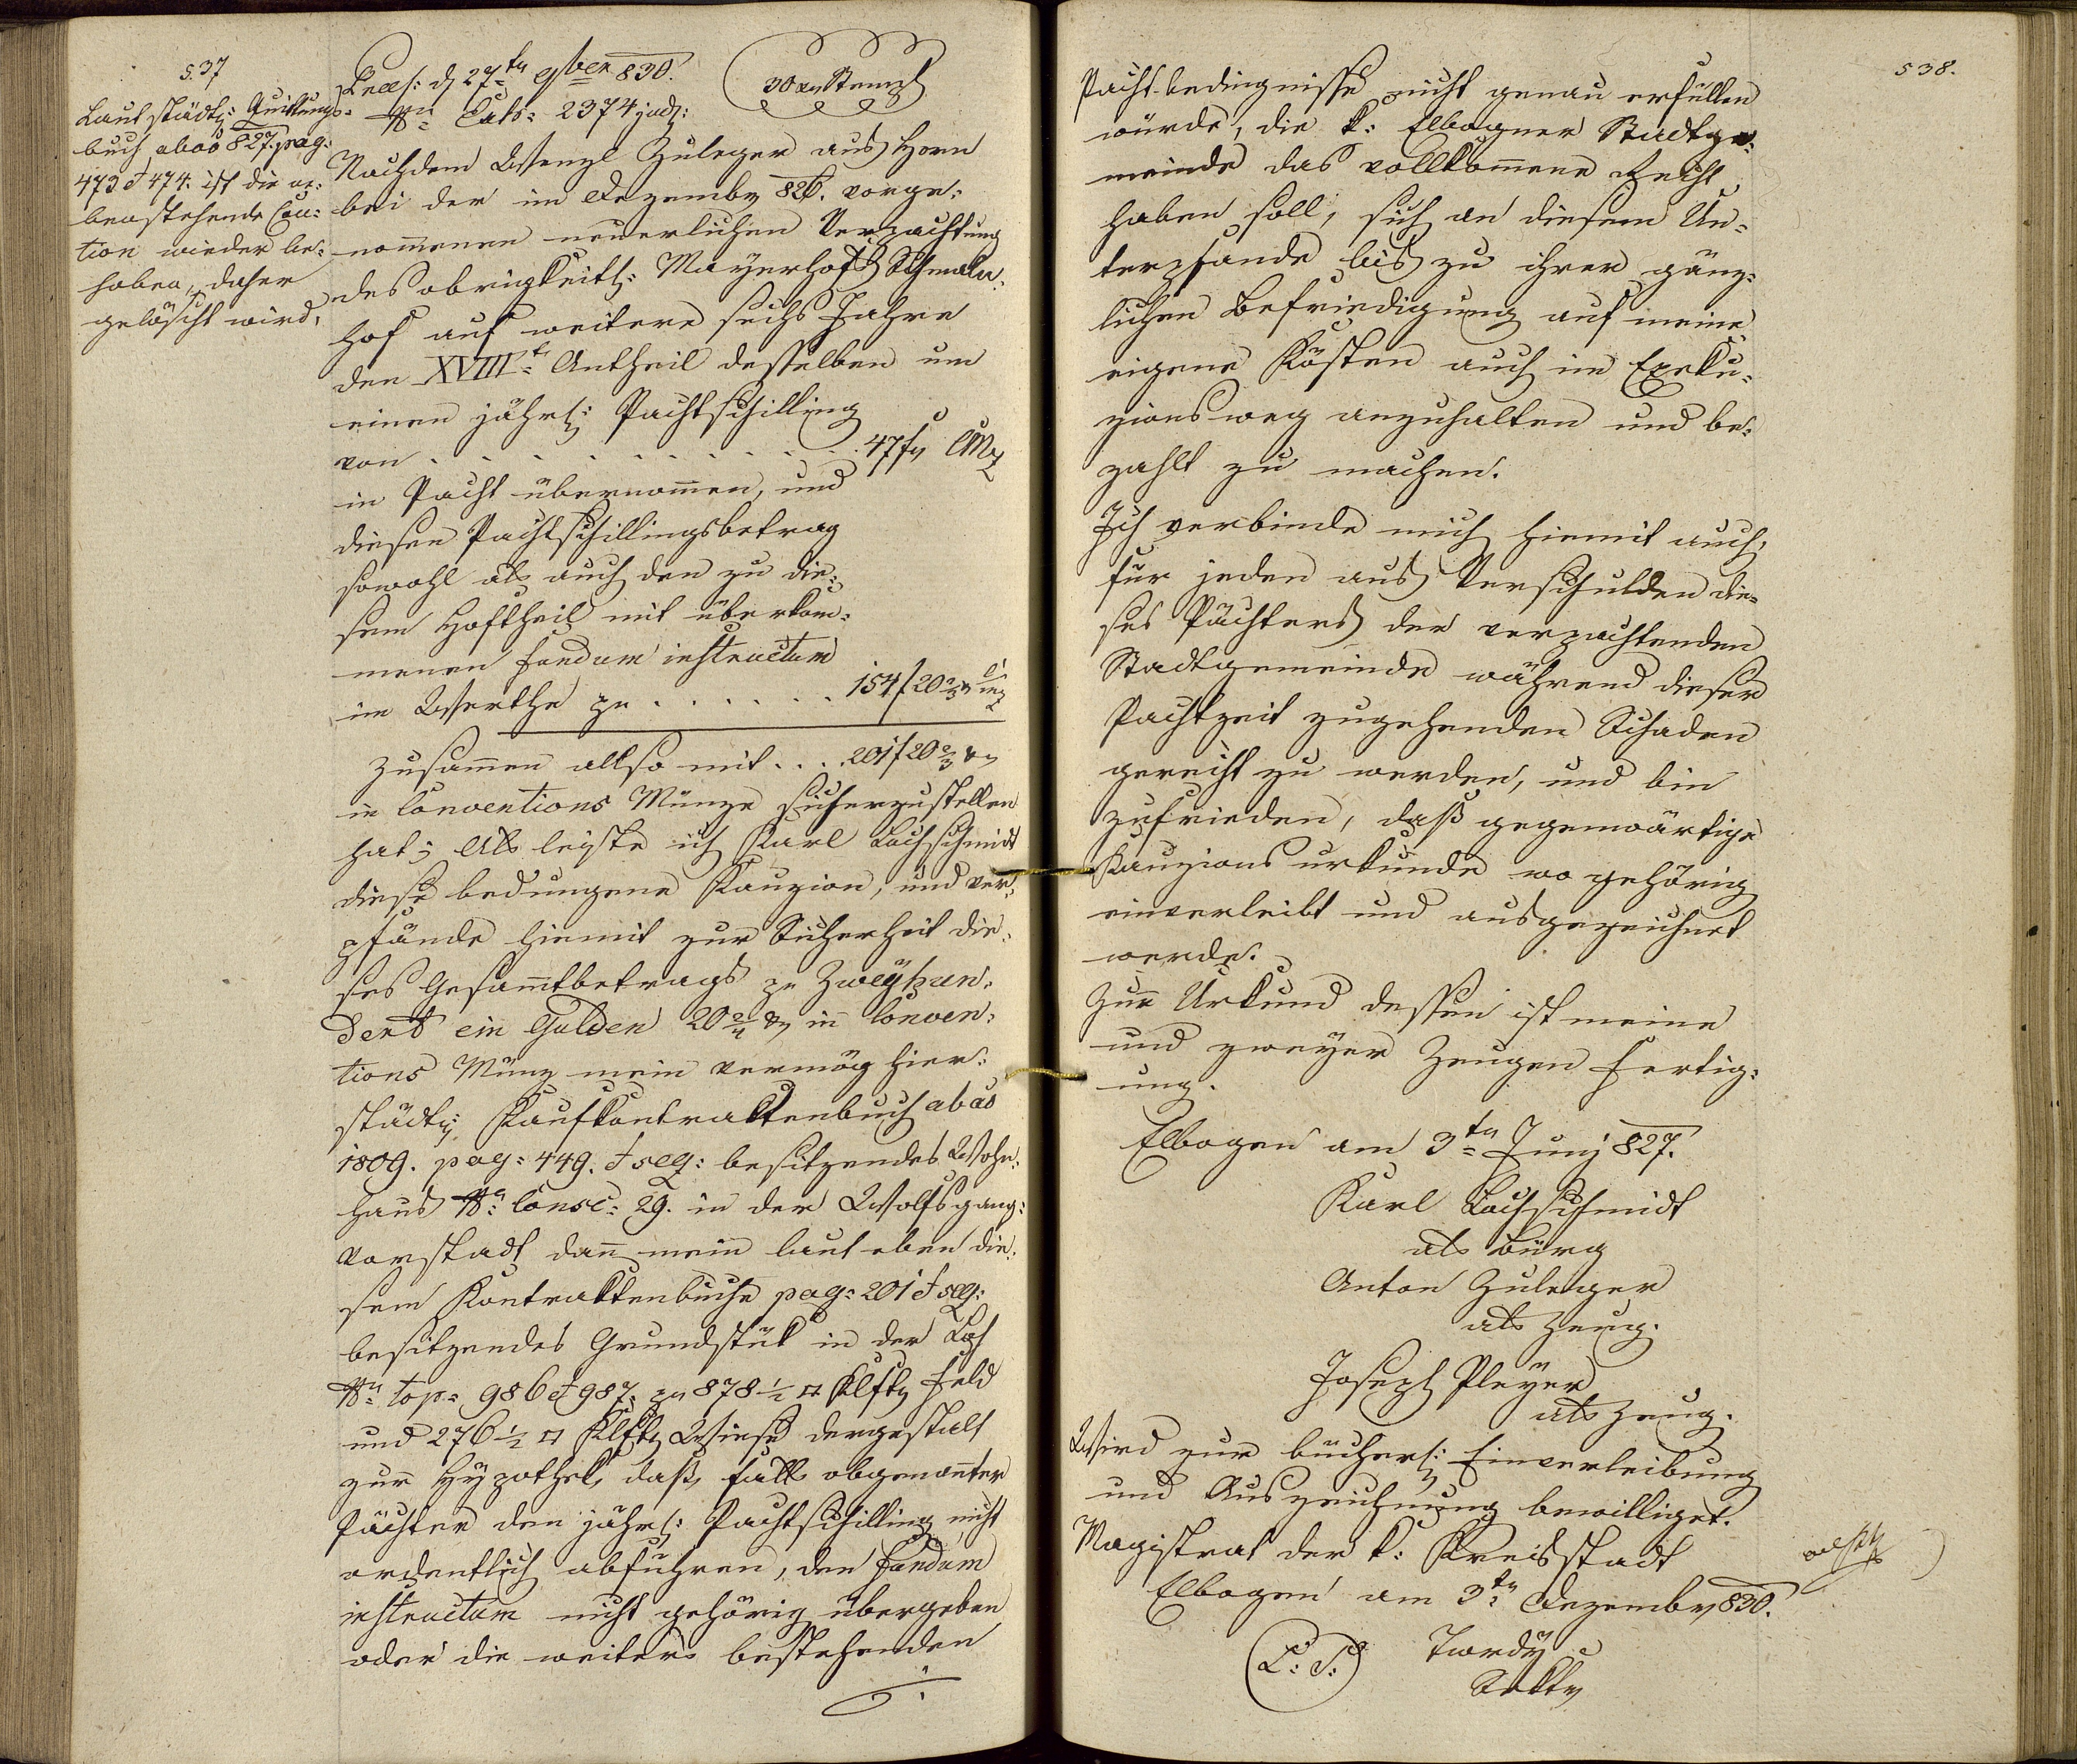 537
Laut städt: Quittungs-
buch abao 827. pag:
473 et 474. ist die ne-
benstehende Cau-
tion wieder be-
hoben, daher
gelöscht wird.
Praes: d 27tn 9ber 830.
30 xr Stempl
Nr. Exh: 2374 jud:
Nachdem Wenzl Zuleger aus Horn
bei der im Dezember 826. vorge-
nommenen neuerlichen Verpachtung
des obrigkeitl: Mayerhofs
hof auf weitere sechs Jahre
den XVIIIt Antheil desselben um
einen jährl: Pachtschilling
von . . . . . . . . . 47 fr CMz
in Pacht übernommen, und
diesen Pachtschillingsbetrag
sowohl als auch den zu die-
sem Hoftheil mit überkom-
menen fundum instructum
im Werthe pr . . . . . . 154 f 20 2/3 xr CMz
zusammen allso mit . . . 201 f 20 2/3 xr
in Conventions Münze sicherzustellen
hat; Als leiste ich Karl Lochschmidt
diese bedungene Kauzion, und ver-
pfände hiemit zur Sicherheit die-
ses Gesammtbetrags pr Zweyhun-
dert ein Gulden 20 2/4 xr in Conven-
tions Münz mein vermög hier-
städt: Kaufkontraktenbuch abao
1809. pag: 449. et seq: besitzendes Wohn-
haus Nr. Consc: 29. in der Wolfsgang-
vorstadt dann mein laut eben die-
sem Kontraktenbuche pag: 201 et seq:
besitzendes Grundstük in der Loh
Nr. top: 986 et 987. pr 878 1/2 □ Klftr Feld
und 276 1/2 □ Klftr Wiese dergestalt
zur Hypothek, daß, falls obgenannter
Pächter den jährl: Pachtschilling nicht
ordentlich abführen, den fundum
instructum nicht gehörig übergeben
oder die weiters bestehenden
538.
Pacht-bedingnisse nicht genau erfüllen
würde, die k: Elbogner Stadtge-
meinde das vollkommene Recht
haben soll, sich an diesem Un-
terpfande bis zu ihrer gänz-
lichen Befriedigung auf meine
eigene Kösten auch im Exeku-
zionsweg anzuhalten und be-
zahlt zu machen.
Ich verbinde mich hiemit auch,
für jeden aus Verschulden die-
ses Pächters der verpachtenden
Stadtgemeinde während dieser
Pachtzeit zugehenden Schaden
gerecht zu werden, und bin
zufrieden, daß gegenwärtige
Kauzionsurkunde wo gehörig
einverleibt und ausgezeichnet
werde.
Zur Urkund dessen ist meine
und zweyer Zeugen Fertig-
ung.
Elbogen am 3tn Juny 827.
Karl Lochschmidt
als Bürg
Anton Zuleger
als Zeug.
Joseph Pleyer
als Zeug.
Wird zur bücherl: Einverleibung
und Auszeichnung bewilliget.
Magistrat der k: Kreisstadt
Elbogen am 3tn Dezember 830.
(L: S:) Twrdy